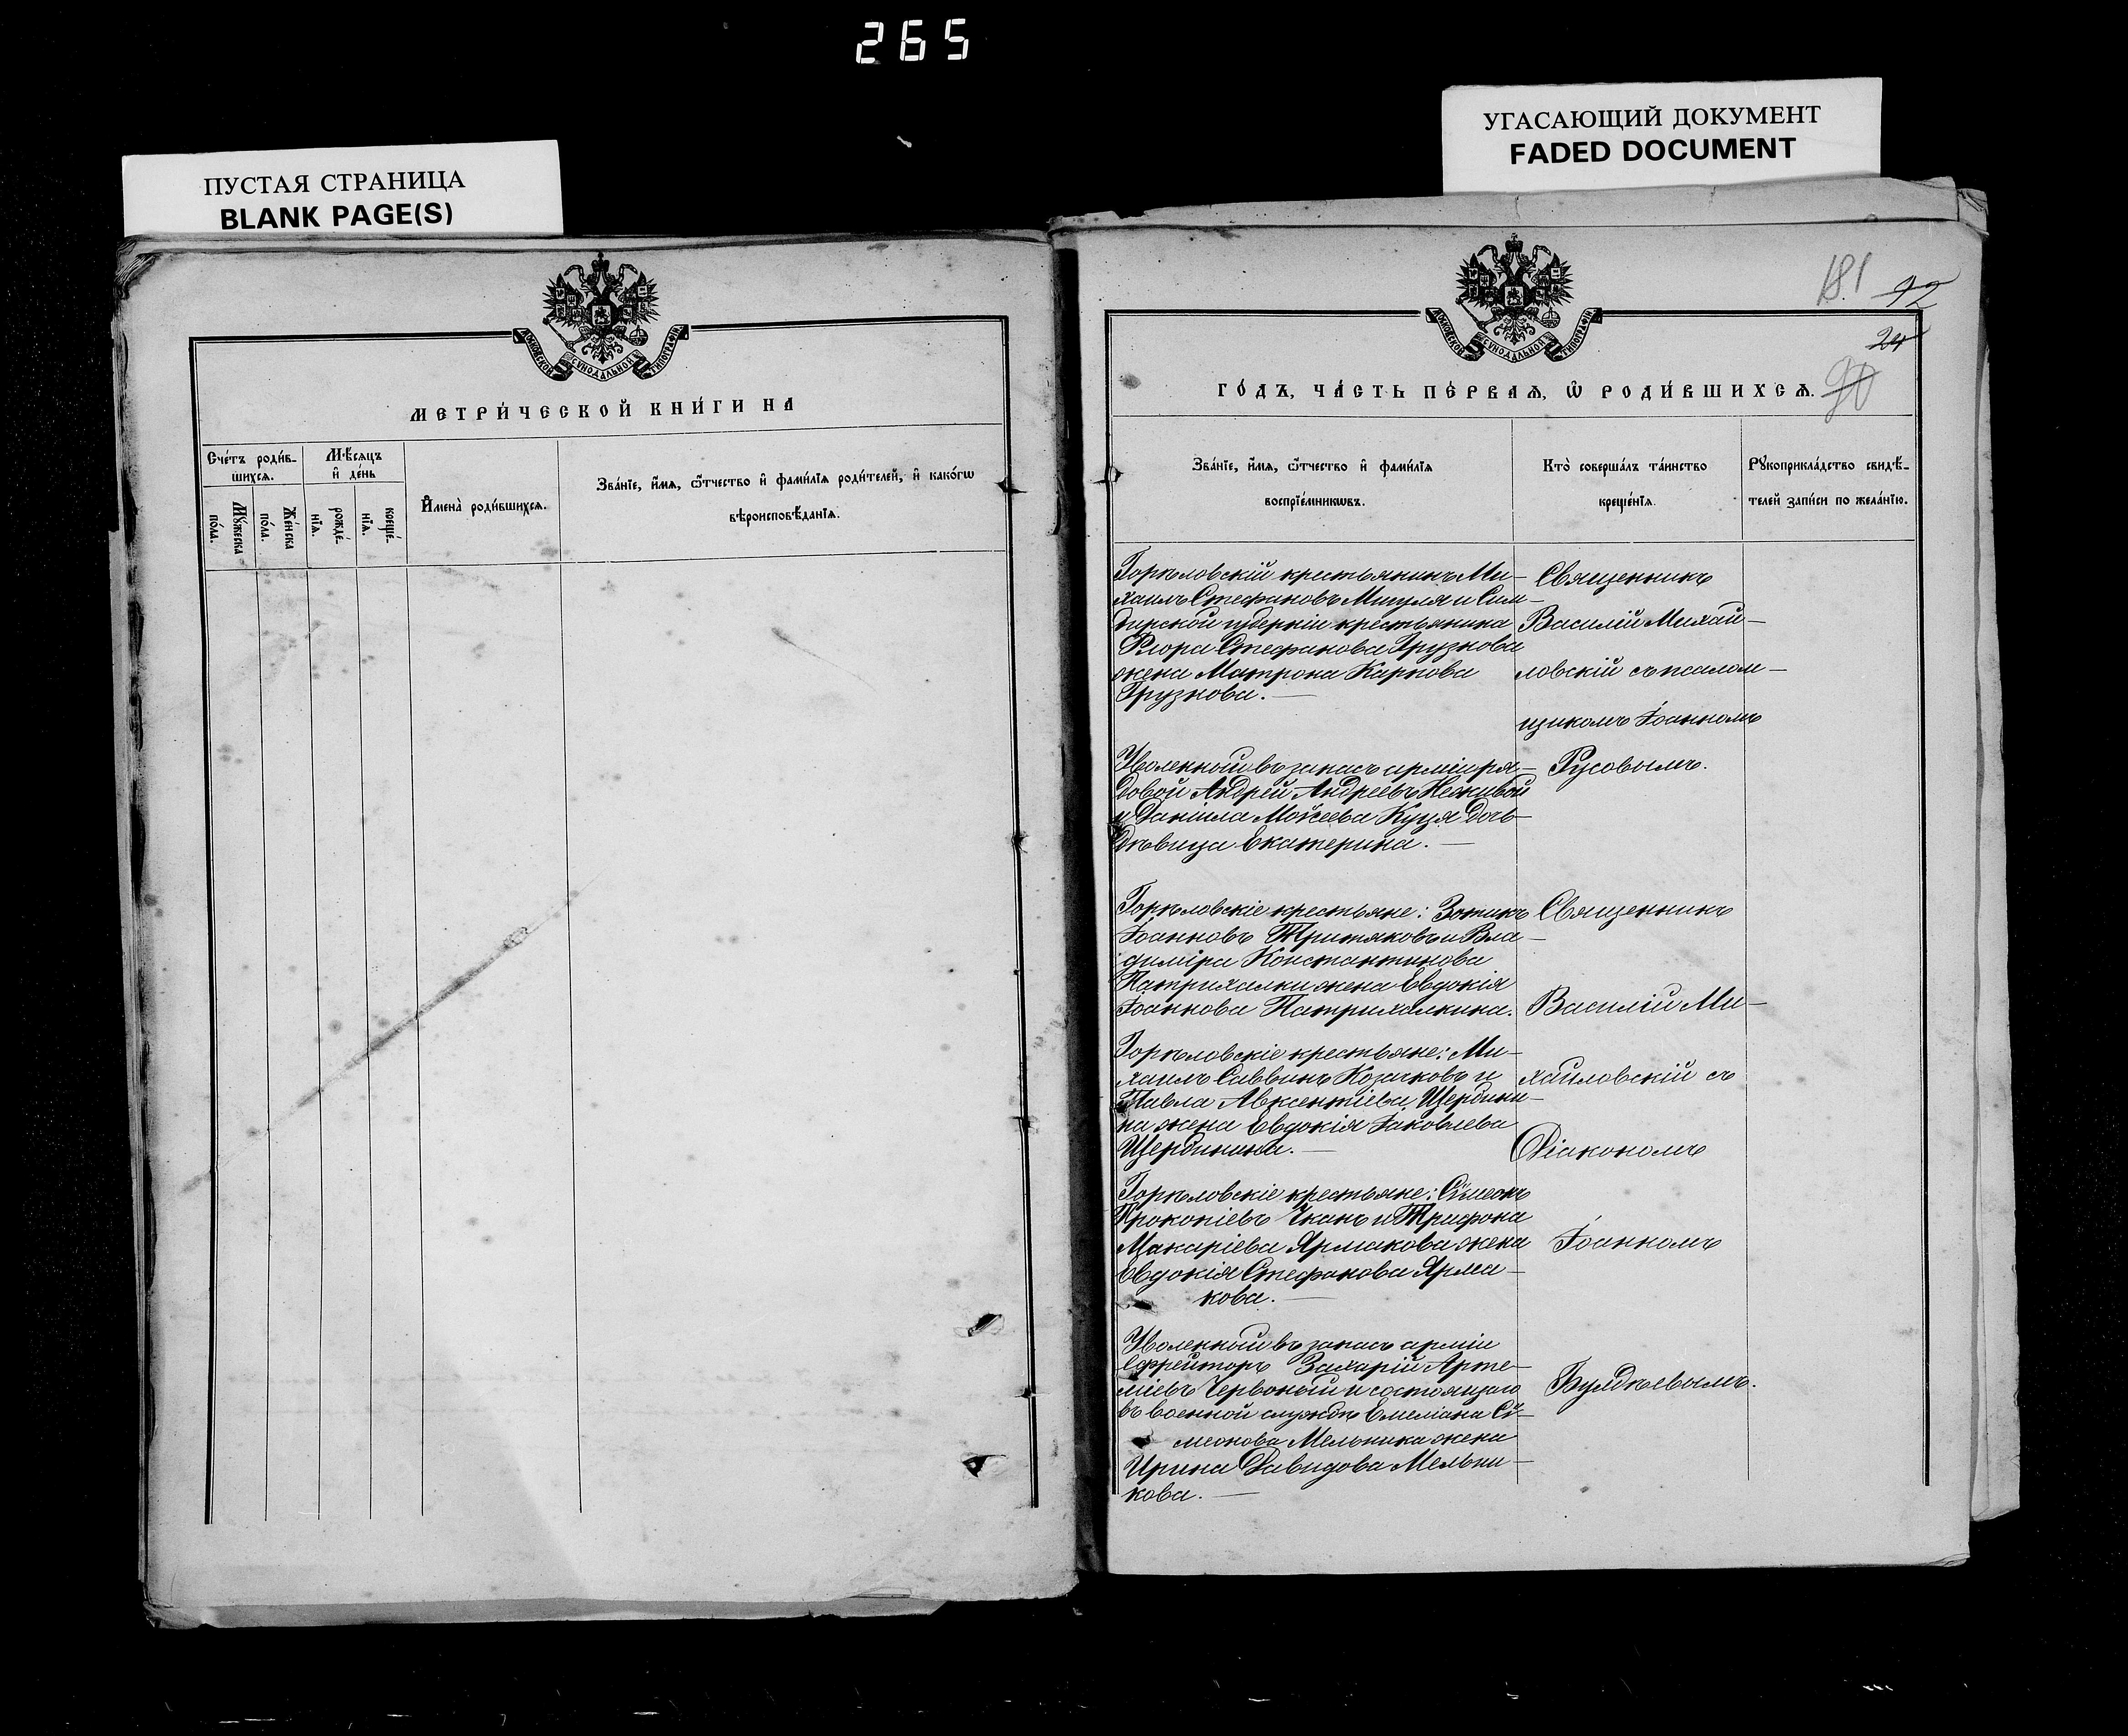 265
ПУСТАЯ СТРАНИЦА
BLANK PAGE(S)
УГАСАЮЩИЙ ДОКУМЕНТ
FADED DOCUMENT
МОСКОВСКОЙ СѴНОДАЛЬНОЙ ТИПОГРАФІИ
МЕТРИ́ЧЕСКОЙ КНИ́ГИ НА
Сче́тъ роди́в-
шихсѧ.
Мѣ́сѧцъ
и҆ де́нь
Мꙋ́жеска
по́ла.
Же́нска
по́ла.
рожде́-
нїѧ.
креще́-
нїѧ.
И҆мена̀ роди́вшихсѧ.
Зва́нїе, и҆́мѧ, ѻ҆́тчество и҆ фами́лїѧ роди́телей, и҆ како́гѡ
вѣроисповѣ́данїѧ.
МОСКОВСКОЙ СѴНОДАЛЬНОЙ ТИПОГРАФІИ
181
12
24
90
ГО́ДЪ, ЧА́СТЬ ПЕ́РВАѦ, Ѡ҆ РОДИ́ВШИХСѦ.
Зва́нїе, и҆́мѧ, ѻ҆́тчество и҆ фами́лїѧ
воспрїе́мникѡвъ.
Кто̀ соверша́лъ та́инство
креще́нїѧ.
Рꙋкоприкла́дство свидѣ́-
телей за́писи по жела́нїю.
Горѣловскій крестьянинъ Ми-
хаилъ Стефановъ Мигуля и Сим-
бирской губерніи крестьянина
Флора Стефанова Грузнова
жена Матрона Карпова
Грузнова.—
Священникъ
Василій Михай-
ловскій съ псалом-
щикомъ Іоанномъ
Русовымъ.
Уволенный въ запасъ арміи ря-
довой Андрей Андреевъ Неживой
и Даніила Моѵсеева Куця дочь
дѣвица Екатерина.—
Горѣловскіе крестьяне: Зотикъ
Іоанновъ Тритяковъ и Вла-
диміра Константинова
Патрихалки жена Евдокія
Іоаннова Патрихалкина.
Горѣловскіе крестьяне: Ми-
хаилъ Саввинъ Козачковъ и
Павла Авксентіева Щербини-
на жена Евдокія Іаковлева
Щербинина.—
Горѣловскіе крестьяне: Сѵмеонъ
Прокопіевъ Ткачъ и Трифона
Макаріева Ярмакова жена
Евдокія Стефанова Ярма-
кова.—
Уволенный въ запасъ арміи
ефрейторъ Захарій Арте-
міевъ Червоный и состоящаго
въ военной службѣ Емеліана Сѵ-
меонова Мельника жена
Ирина Давидова Мельни-
кова.—
Священникъ
Василій Ми-
хайловскій съ
Діакономъ
Іоанномъ
Булдѣевымъ.